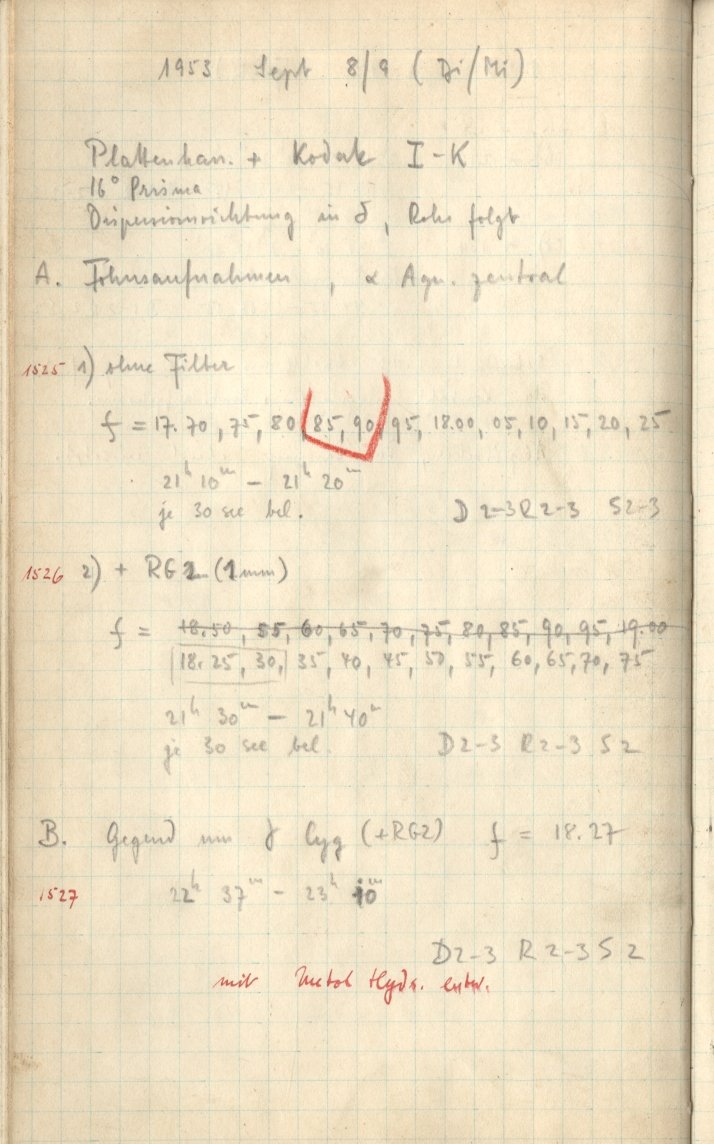 1953 Sept 8/9 (Di/Mi)
Plattenhan. + Kodak I-K
16° Prisma
Dispersionsrichtung in δ, Rohr folgt
A. Fokusaufnahmen, α Aqu. zentral
1525 1) ohne Filter
f = 17.70, 75, 80, 85, 90, 95, 18.00, 05, 10, 15, 20, 25
21h 10m – 21h 20m
je 30 sec bel. D 2-3 R 2-3 S 2-3
1526 2) + RG2 (1mm)
f = 18.50, 55, 60, 65, 70, 75, 80, 85, 90, 95, 19.00
18.25, 30, 35, 40, 45, 50, 55, 60, 65, 70, 75
21h 30m – 21h 40m
je 30 sec bel. D 2-3 R 2-3 S 2
B. Gegend um γ Cyg (+RG2) f = 18.27
1527 22h 37m – 23h 10m
D 2-3 R 2-3 S 2
mit Metol Hydr. entw.